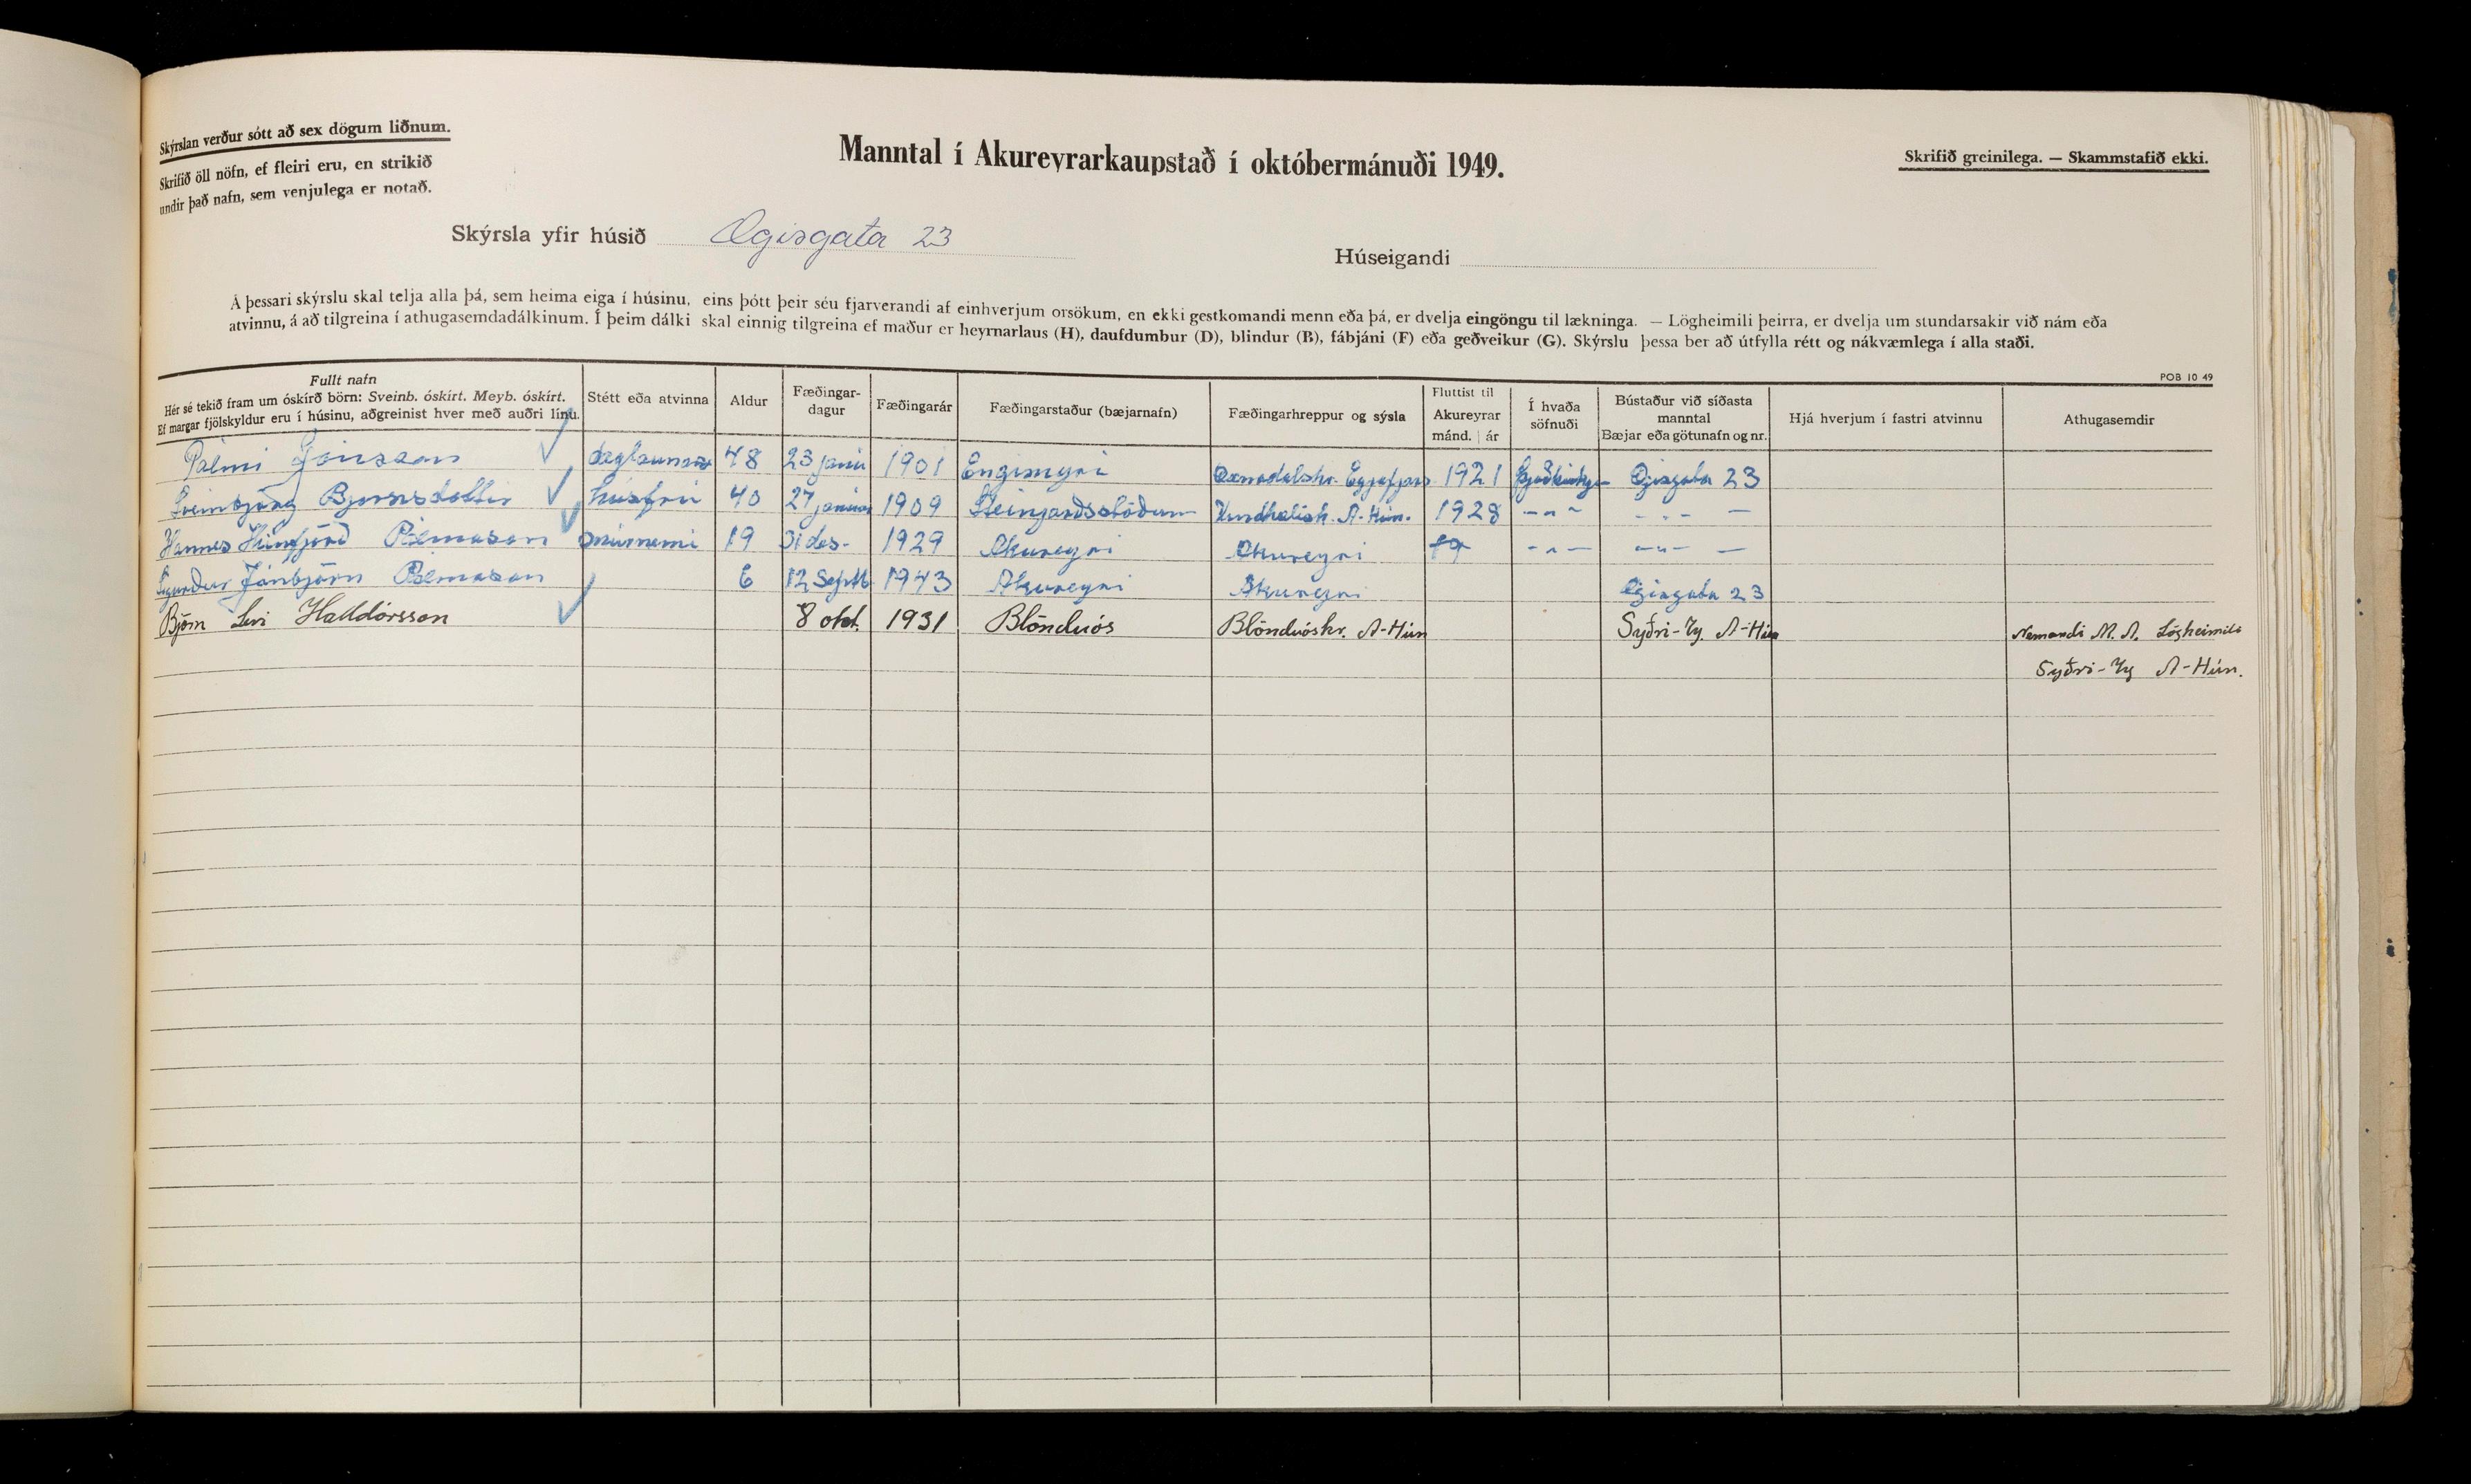 Skýrslan verður sótt að sex dögum liðnum.
Skrifið öll nöfn, ef fleiri eru, en strikið
undir það nafn, sem venjulega er notað.
Manntal í Akureyrarkaupstað í októbermánuði 1949.
Skrifið greinilega. — Skammstafið ekki.
Skýrsla yfir húsið Ægisgata 23
Húseigandi
Á þessari skýrslu skal telja alla þá, sem heima eiga í húsinu, eins þótt þeir séu fjarverandi af einhverjum orsökum, en ekki gestkomandi menn eða þá, er dvelja eingöngu til lækninga. — Lögheimili þeirra, er dvelja um stundarsakir við nám eða
atvinnu, á að tilgreina í athugasemdadálkinum. Í þeim dálki skal einnig tilgreina ef maður er heyrnarlaus (H), daufdumbur (D), blindur (B), fábjáni (F) eða geðveikur (G). Skýrslu þessa ber að útfylla rétt og nákvæmlega í alla staði.
POB 10 49
Fullt nafn
Hér sé tekið fram um óskírð börn: Sveinb. óskírt. Meyb. óskírt.
Ef margar fjölskyldur eru í húsinu, aðgreinist hver með auðri línu.
Stétt eða atvinna
Aldur
Fæðingar-
dagur
Fæðingarár
Fæðingarstaður (bæjarnafn)
Fæðingarhreppur og sýsla
Fluttist til
Akureyrar
mánd. | ár
Í hvaða
söfnuði
Bústaður við síðasta
manntal
Bæjar eða götunafn og nr.
Hjá hverjum í fastri atvinnu
Athugasemdir
Pálmi Jónsson 48 23 janú 1901 Engimýri Öxnadalshr. Eyjafjars 1921 Ægisgata 23
Sveinbjörg Bjornsdottir húsfrú 40 27 janúar 1909 Vindhælish. A-Hún. 1928 -"- -"- —
Hannes Húnfjörð Pálmason múrnemi 19 31 des- 1929 Akureyri Akureyri 19 -"- -"- —
Sigurður Jónbjörn Pálmason 6 12 Septb 1943 Akureyri Akureyri Ægisgata 23
Björn Levi Halldórsson 8 okt. 1931 Blönduós Blönduóshr. A-Hún Syðri-Ey A-Hún Nemandi M.A. Lögheimili
Syðri-Ey A-Hún.